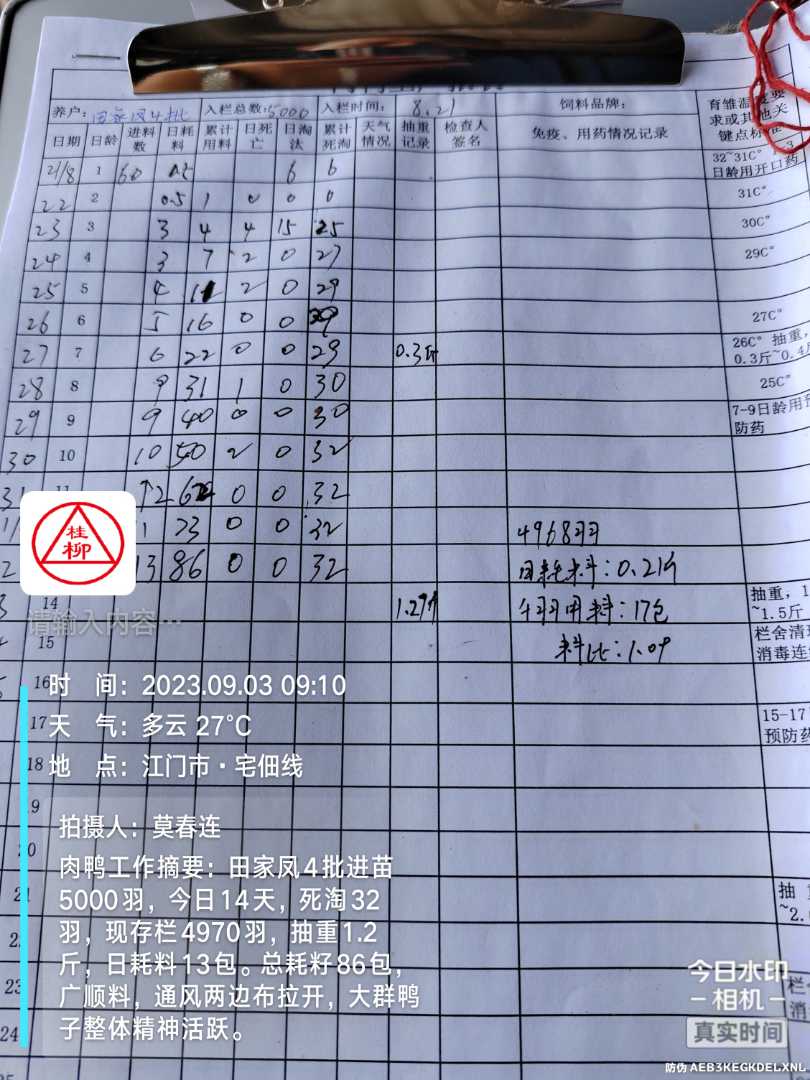 养户: 田家凤4批 入栏总数: 5000 入栏时间: 8.21 饲料品牌: 育雏温度要求或其他关键点标准
日期 日龄 进料数 日耗料 累计用料 日死亡 日淘汰 累计死淘 天气情况 抽重记录 检查人签名 免疫、用药情况记录
21/8 1 60 0.5 6 6 32~31C° 1-3日龄用开口药
22 2 0.5 1 0 0 0 31C°
23 3 3 4 4 15 25 30C°
24 4 3 7 2 0 27 29C°
25 5 4 11 2 0 29
26 6 5 16 0 0 29 27C°
27 7 6 22 0 0 29 0.3斤 26C° 抽重,
0.3斤~0.4斤
28 8 9 31 1 0 30 25C°
29 9 9 40 0 0 30 7-9日龄用预防药
30 10 10 50 2 0 32
31 11 12 62 0 0 32
1/ 11 73 0 0 32 4968羽
2 13 86 0 0 32 日耗料:0.21斤
3 14 1.2斤 千羽用料:17包 抽重,1
~1.5斤
4 15 料比:1.09 栏舍清理
消毒连
16
17 15-17
预防药
18
19
20
21 抽
~2.
22
23 栏
消
24
桂柳
请输入内容…
时 间: 2023.09.03 09:10
天 气: 多云 27℃
地 点: 江门市·宅佃线
拍摄人: 莫春连
肉鸭工作摘要: 田家凤4批进苗
5000羽, 今日14天, 死淘32
羽, 现存栏4970羽, 抽重1.2
斤, 日耗料13包。总耗籽86包,
广顺料, 通风两边布拉开, 大群鸭
子整体精神活跃。
今日水印
-相机-
真实时间
防伪 AEB3KEGKDELXNL